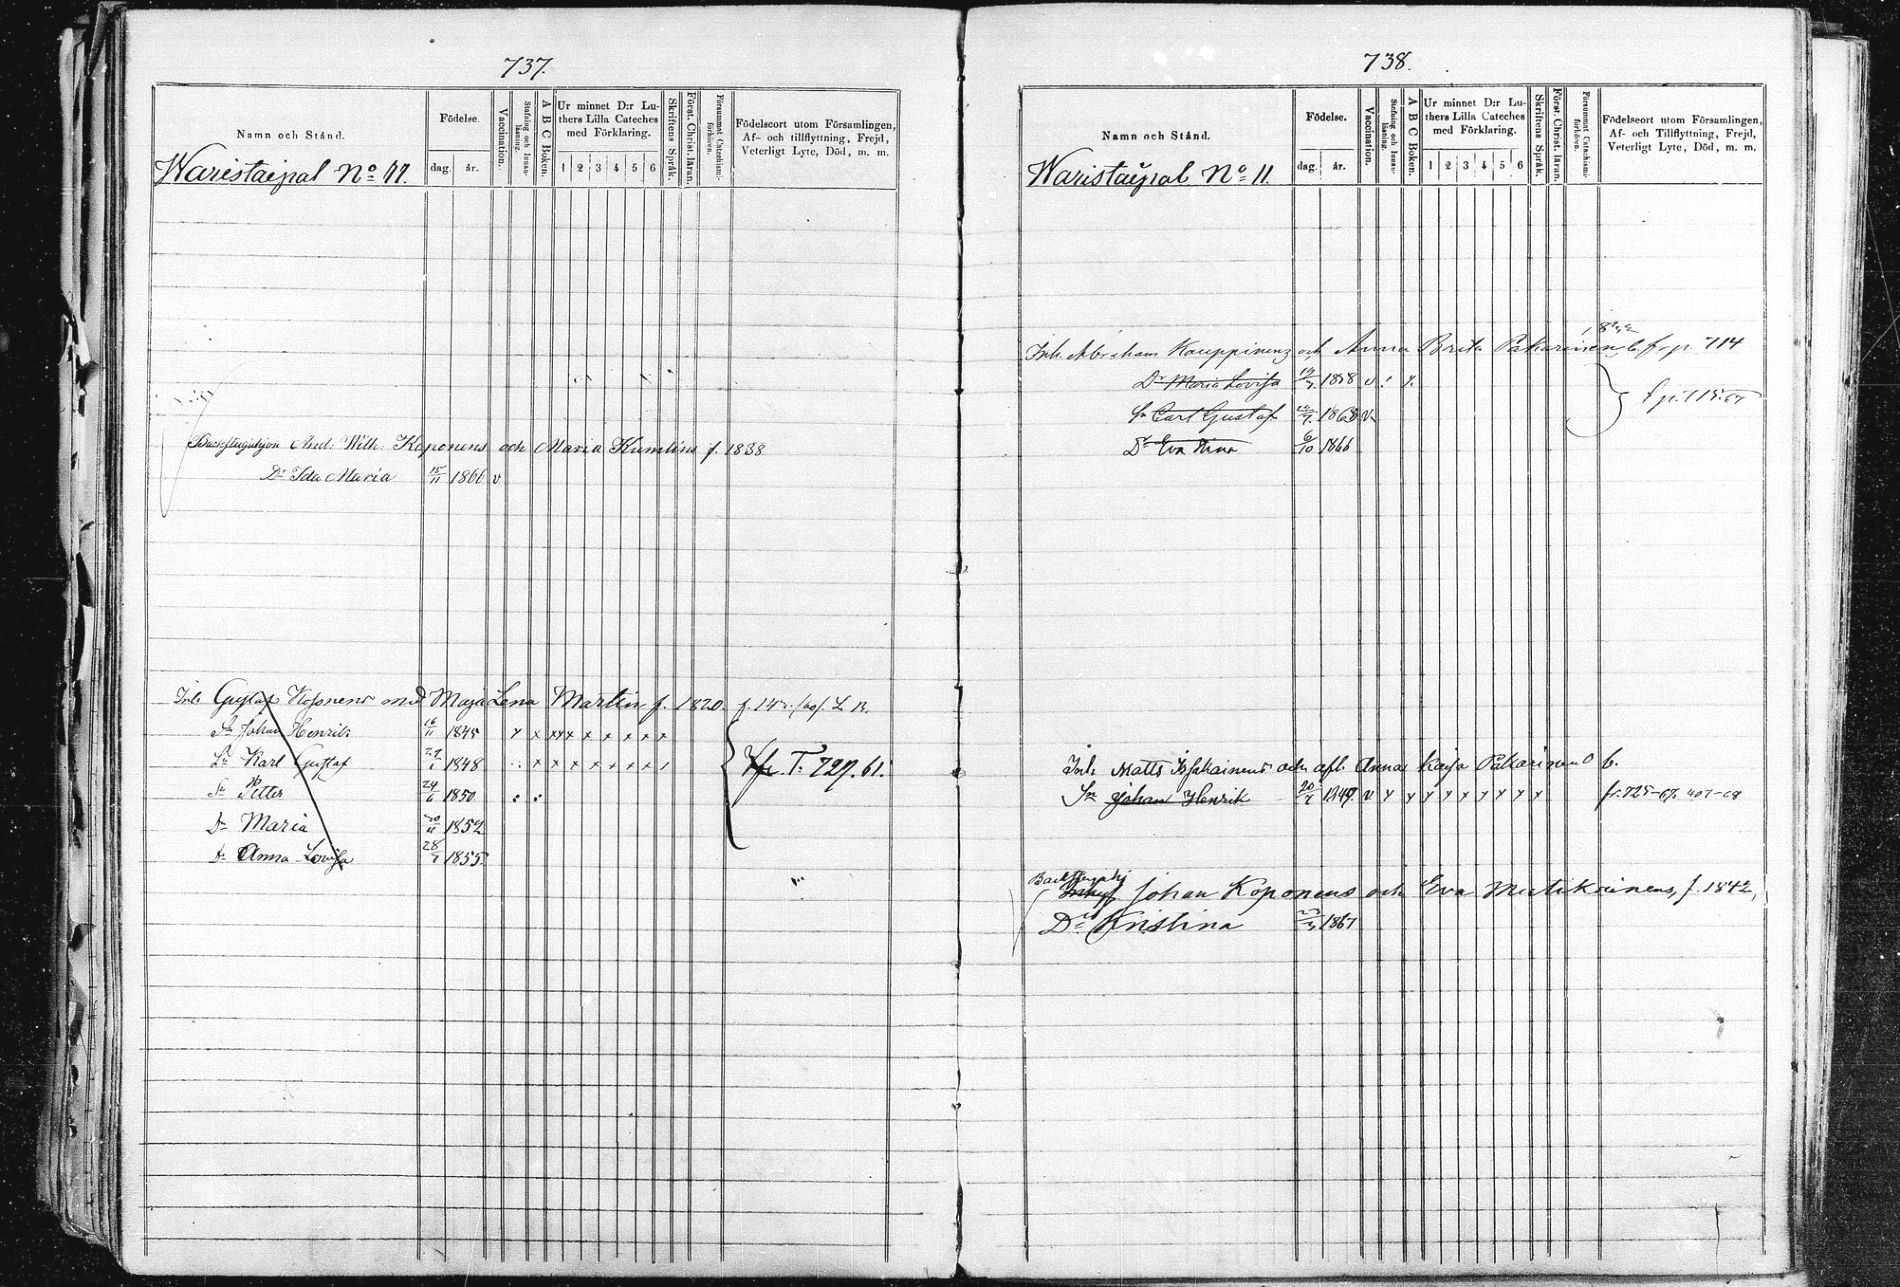 737.
Namn och Stånd.
Födelse.
dag. år.
Vaccination.
Stafning och Innanläsning.
A B C Boken.
Ur minnet D:r Lu-
thers Lilla Cateches
med Förklaring.
1 2 3 4 5 6
Skriftens Språk.
Först. Christ. läran.
Försummat Catechismi-förhören.
Födelseort utom Församlingen,
Af- och tillflyttning, Frejd,
Veterligt Lyte, Död, m. m.
Waristaipal No 11.
And. Wilh. Koponens och Maria Kumlins f. 1838
Dr Ida Maria 15/11 1866 v
Inh. Gustaf Koponens med Maja Lena Martin f. 1820.
Sn Johan Henrik 16/11 1845 x x x x x x x x x x
Sn Karl Gustaf 1848 x x x x x x x
Sn Petter 24/6 1850
Dr Maria 1852
Dr Anna Lovisa 1855.
T. 727. 61.
738.
Namn och Stånd.
Födelse.
dag. år.
Vaccination.
Stafning och Innanläsning.
A B C Boken.
Ur minnet D:r Lu-
thers Lilla Cateches
med Förklaring.
1 2 3 4 5 6
Skriftens Språk.
Först. Christ. läran.
Försummat Catechismi-förhören.
Födelseort utom Församlingen,
Af- och Tillflyttning, Frejd,
Veterligt Lyte, Död, m. m.
Waristaipal No 11.
Inh. Abraham Kauppinens och Anna Brita Pakarinens b. f. p. 714
Dr Maria Lovisa 1858 v
Sn Carl Gustaf 1863 v
Dr Eva Stina 6/10 1866
Inh. Matts Issakainens och afl. Anna Kaisa Pakarinens b.
Sn Johan Henrik 1849. v x x x x x x x x x
Johan Koponens och Eva Mustikainens, f. 1842,
Dr Kristina 1867